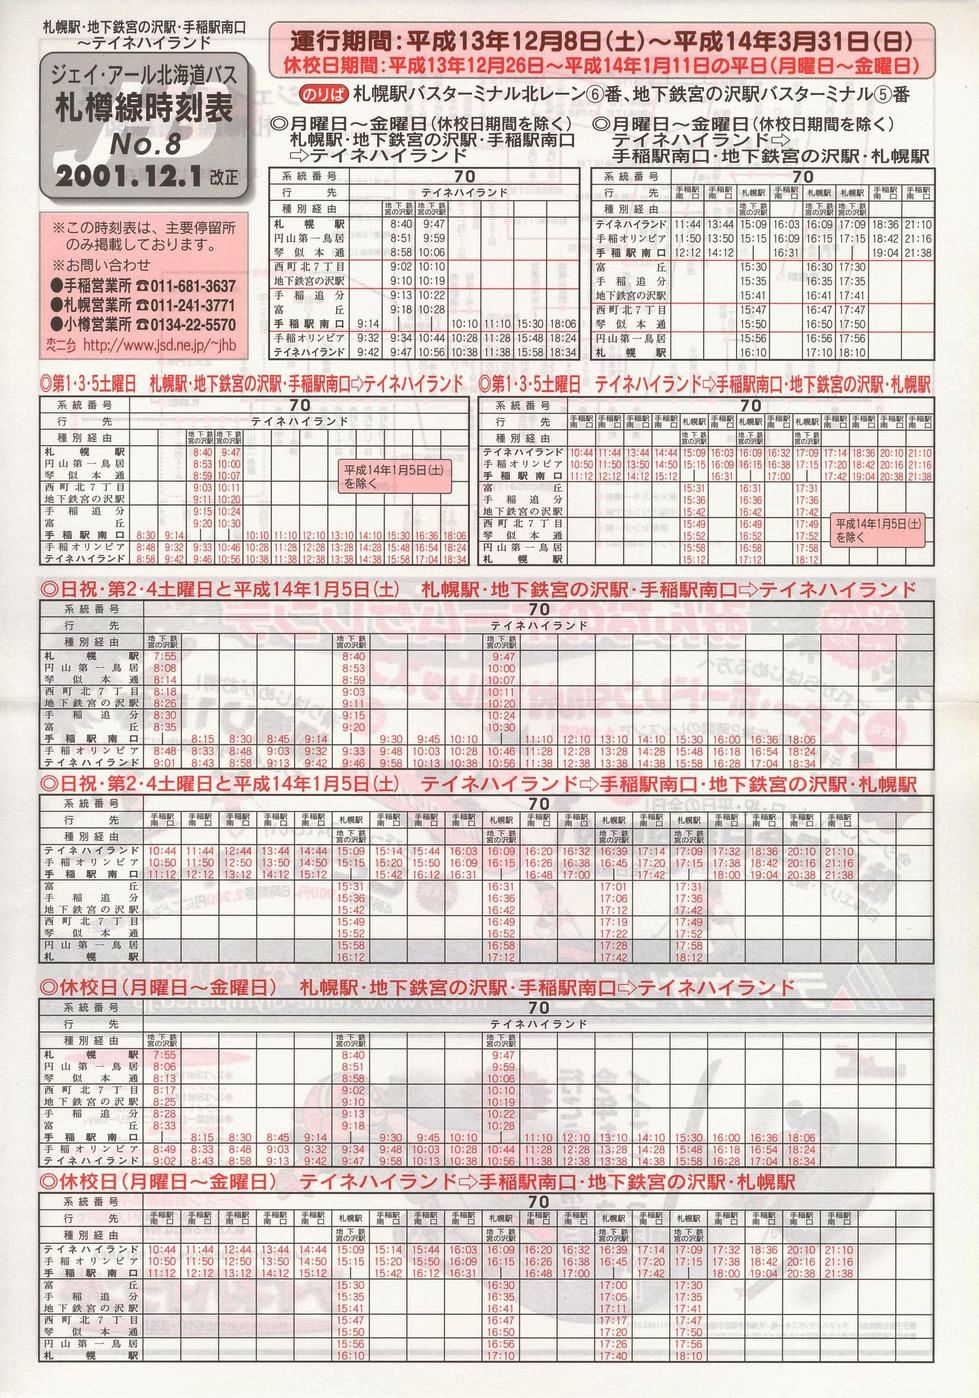 札幌駅・地下鉄宮の沢駅・手稲駅南口
～テイネハイランド
ジェイ・アール北海道バス
札樽線時刻表
No.8
2001.12.1 改正
運行期間:平成13年12月8日(土)～平成14年3月31日(日)
休校日期間:平成13年12月26日～平成14年1月11日の平日(月曜日～金曜日)
のりば 札幌駅バスターミナル北レーン⑥番、地下鉄宮の沢駅バスターミナル⑤番
※この時刻表は、主要停留所
のみ掲載しております。
※お問い合わせ
●手稲営業所 ☎011-681-3637
●札幌営業所 ☎011-241-3771
●小樽営業所 ☎0134-22-5570
ホームページ http://www.jsd.ne.jp/~jhb
◎月曜日～金曜日(休校日期間を除く)
札幌駅・地下鉄宮の沢駅・手稲駅南口
⇨テイネハイランド
系統番号 70
行先 テイネハイランド
種別経由 地下鉄宮の沢駅 地下鉄宮の沢駅
札幌駅 8:40 9:47
円山第一鳥居 8:51 9:59
琴似本通 8:58 10:06
西町北7丁目 9:02 10:10
地下鉄宮の沢駅 9:10 10:19
手稲追分 9:13 10:22
富丘 9:18 10:28
手稲駅南口 9:14 | | 10:10 11:10 15:30 18:06
手稲オリンピア 9:32 9:34 10:44 10:28 11:28 15:48 18:24
テイネハイランド 9:42 9:47 10:56 10:38 11:38 15:58 18:34
◎月曜日～金曜日(休校日期間を除く)
テイネハイランド⇨
手稲駅南口・地下鉄宮の沢駅・札幌駅
系統番号 70
行先 手稲駅南口 手稲駅南口 札幌駅 手稲駅南口 札幌駅 札幌駅 手稲駅南口 手稲駅南口
種別経由 地下鉄宮の沢駅 地下鉄宮の沢駅 地下鉄宮の沢駅
テイネハイランド 11:44 13:44 15:09 16:03 16:09 17:09 18:36 21:10
手稲オリンピア 11:50 13:50 15:15 16:09 16:15 17:15 18:42 21:16
手稲駅南口 12:12 14:12 | 16:31 | | 19:04 21:38
富丘 15:30 16:30 17:30
手稲追分 15:35 16:35 17:35
地下鉄宮の沢駅 15:41 16:41 17:41
西町北7丁目 15:47 16:47 17:47
琴似本通 15:50 16:50 17:50
円山第一鳥居 15:56 16:56 17:56
札幌駅 16:10 17:10 18:10
◎第1・3・5土曜日 札幌駅・地下鉄宮の沢駅・手稲駅南口⇨テイネハイランド
系統番号 70
行先 テイネハイランド
種別経由 地下鉄宮の沢駅 地下鉄宮の沢駅
札幌駅 8:40 9:47
円山第一鳥居 8:53 10:00
琴似本通 8:59 10:07
西町北7丁目 9:03 10:11
地下鉄宮の沢駅 9:11 10:20
手稲追分 9:15 10:24
富丘 9:20 10:30
手稲駅南口 8:30 9:14 | | 10:10 11:10 12:10 13:10 14:10 15:30 16:36 18:06
手稲オリンピア 8:48 9:32 9:33 10:46 10:28 11:28 12:28 13:28 14:28 15:48 16:54 18:24
テイネハイランド 8:58 9:42 9:46 10:56 10:38 11:38 12:38 13:38 14:38 15:58 17:04 18:34
平成14年1月5日(土)
を除く
◎第1・3・5土曜日 テイネハイランド⇨手稲駅南口・地下鉄宮の沢駅・札幌駅
系統番号 70
行先 手稲駅南口 手稲駅南口 手稲駅南口 手稲駅南口 札幌駅 手稲駅南口 札幌駅 手稲駅南口 札幌駅 手稲駅南口 手稲駅南口 手稲駅南口 手稲駅南口
種別経由 地下鉄宮の沢駅 地下鉄宮の沢駅 地下鉄宮の沢駅
テイネハイランド 10:44 11:44 13:44 14:44 15:09 16:03 16:09 16:32 17:09 17:14 18:36 20:10 21:10
手稲オリンピア 10:50 11:50 13:50 14:50 15:15 16:09 16:15 16:38 17:15 17:20 18:42 20:16 21:16
手稲駅南口 11:12 12:12 14:12 15:12 | 16:31 | 17:00 | 17:42 19:04 20:38 21:38
富丘 15:31 16:31 17:31
手稲追分 15:36 16:36 17:36
地下鉄宮の沢駅 15:42 16:42 17:42
西町北7丁目 15:49 16:49 17:49
琴似本通 15:52 16:52 17:52
円山第一鳥居 15:58 16:58 17:58
札幌駅 16:12 17:12 18:12
平成14年1月5日(土)
を除く
◎日祝・第2・4土曜日と平成14年1月5日(土) 札幌駅・地下鉄宮の沢駅・手稲駅南口⇨テイネハイランド
系統番号 70
行先 テイネハイランド
種別経由 地下鉄宮の沢駅 地下鉄宮の沢駅 地下鉄宮の沢駅
札幌駅 7:55 8:40 9:47
円山第一鳥居 8:08 8:53 10:00
琴似本通 8:14 8:59 10:07
西町北7丁目 8:18 9:03 10:11
地下鉄宮の沢駅 8:26 9:11 10:20
手稲追分 8:30 9:15 10:24
富丘 8:35 9:20 10:30
手稲駅南口 | 8:15 8:30 8:45 9:14 | 9:30 9:45 10:10 | 11:10 12:10 13:10 14:10 15:30 16:00 16:36 18:06
手稲オリンピア 8:48 8:33 8:48 9:03 9:32 9:33 9:48 10:03 10:28 10:46 11:28 12:28 13:28 14:28 15:48 16:18 16:54 18:24
テイネハイランド 9:01 8:43 8:58 9:13 9:42 9:46 9:58 10:13 10:38 10:56 11:38 12:38 13:38 14:38 15:58 16:28 17:04 18:34
◎日祝・第2・4土曜日と平成14年1月5日(土) テイネハイランド⇨手稲駅南口・地下鉄宮の沢駅・札幌駅
系統番号 70
行先 手稲駅南口 手稲駅南口 手稲駅南口 手稲駅南口 手稲駅南口 札幌駅 手稲駅南口 手稲駅南口 手稲駅南口 札幌駅 手稲駅南口 手稲駅南口 札幌駅 手稲駅南口 札幌駅 手稲駅南口 手稲駅南口 手稲駅南口 手稲駅南口
種別経由 地下鉄宮の沢駅 地下鉄宮の沢駅 地下鉄宮の沢駅 地下鉄宮の沢駅
テイネハイランド 10:44 11:44 12:44 13:44 14:44 15:09 15:14 15:44 16:03 16:09 16:20 16:32 16:39 17:14 17:09 17:32 18:36 20:10 21:10
手稲オリンピア 10:50 11:50 12:50 13:50 14:50 15:15 15:20 15:50 16:09 16:15 16:26 16:38 16:45 17:20 17:15 17:38 18:42 20:16 21:16
手稲駅南口 11:12 12:12 13:12 14:12 15:12 | 15:42 16:12 16:31 | 16:48 17:00 | 17:42 | 18:00 19:04 20:38 21:38
富丘 15:31 16:31 17:01 17:31
手稲追分 15:36 16:36 17:06 17:36
地下鉄宮の沢駅 15:42 16:42 17:12 17:42
西町北7丁目 15:49 16:49 17:19 17:49
琴似本通 15:52 16:52 17:22 17:52
円山第一鳥居 15:58 16:58 17:28 17:58
札幌駅 16:12 17:12 17:42 18:12
◎休校日(月曜日～金曜日) 札幌駅・地下鉄宮の沢駅・手稲駅南口⇨テイネハイランド
系統番号 70
行先 テイネハイランド
種別経由 地下鉄宮の沢駅 地下鉄宮の沢駅 地下鉄宮の沢駅
札幌駅 7:55 8:40 9:47
円山第一鳥居 8:06 8:51 9:59
琴似本通 8:13 8:58 10:06
西町北7丁目 8:17 9:02 10:10
地下鉄宮の沢駅 8:25 9:10 10:19
手稲追分 8:28 9:13 10:22
富丘 8:33 9:18 10:28
手稲駅南口 | 8:15 8:30 8:45 9:14 | 9:30 9:45 10:10 | 11:10 12:10 13:10 14:10 15:30 16:00 16:36 18:06
手稲オリンピア 8:49 8:33 8:48 9:03 9:32 9:34 9:48 10:03 10:28 10:44 11:28 12:28 13:28 14:28 15:48 16:18 16:54 18:24
テイネハイランド 9:02 8:43 8:58 9:13 9:42 9:47 9:58 10:13 10:38 10:56 11:38 12:38 13:38 14:38 15:58 16:28 17:04 18:34
◎休校日(月曜日～金曜日) テイネハイランド⇨手稲駅南口・地下鉄宮の沢駅・札幌駅
系統番号 70
行先 手稲駅南口 手稲駅南口 手稲駅南口 手稲駅南口 手稲駅南口 札幌駅 手稲駅南口 手稲駅南口 手稲駅南口 札幌駅 手稲駅南口 手稲駅南口 札幌駅 手稲駅南口 札幌駅 手稲駅南口 手稲駅南口 手稲駅南口 手稲駅南口
種別経由 地下鉄宮の沢駅 地下鉄宮の沢駅 地下鉄宮の沢駅 地下鉄宮の沢駅
テイネハイランド 10:44 11:44 12:44 13:44 14:44 15:09 15:14 15:44 16:03 16:09 16:20 16:32 16:39 17:14 17:09 17:32 18:36 20:10 21:10
手稲オリンピア 10:50 11:50 12:50 13:50 14:50 15:15 15:20 15:50 16:09 16:15 16:26 16:38 16:45 17:20 17:15 17:38 18:42 20:16 21:16
手稲駅南口 11:12 12:12 13:12 14:12 15:12 | 15:42 16:12 16:31 | 16:48 17:00 | 17:42 | 18:00 19:04 20:38 21:38
富丘 15:30 16:30 17:00 17:30
手稲追分 15:35 16:35 17:05 17:35
地下鉄宮の沢駅 15:41 16:41 17:11 17:41
西町北7丁目 15:47 16:47 17:17 17:47
琴似本通 15:50 16:50 17:20 17:50
円山第一鳥居 15:56 16:56 17:26 17:56
札幌駅 16:10 17:10 17:40 18:10